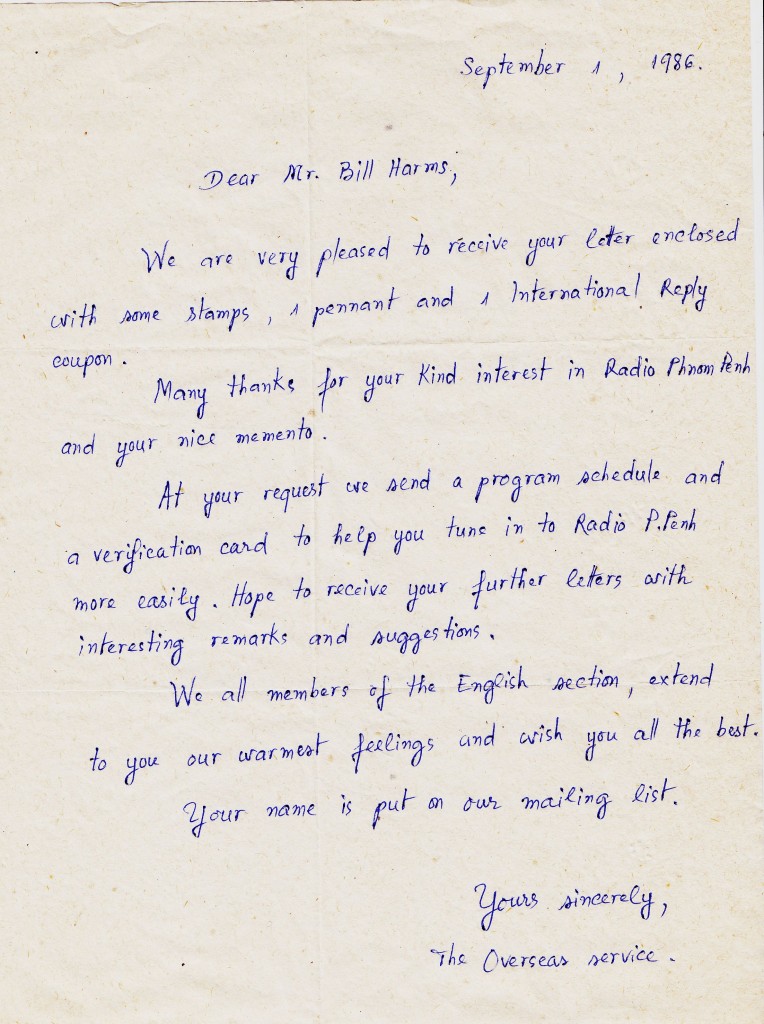 September 1, 1986.
Dear Mr. Bill Harms,
We are very pleased to receive your letter enclosed
with some stamps, 1 pennant and 1 International Reply
coupon.
Many thanks for your Kind interest in Radio Phnom Penh
and your nice memento.
At your request we send a program schedule and
a verification card to help you tune in to Radio P.Penh
more easily. Hope to receive your further letters with
interesting remarks and suggestions.
We all members of the English section, extend
to you our warmest feelings and wish you all the best.
Your name is put on our mailing list.
Yours sincerely,
The Overseas service.